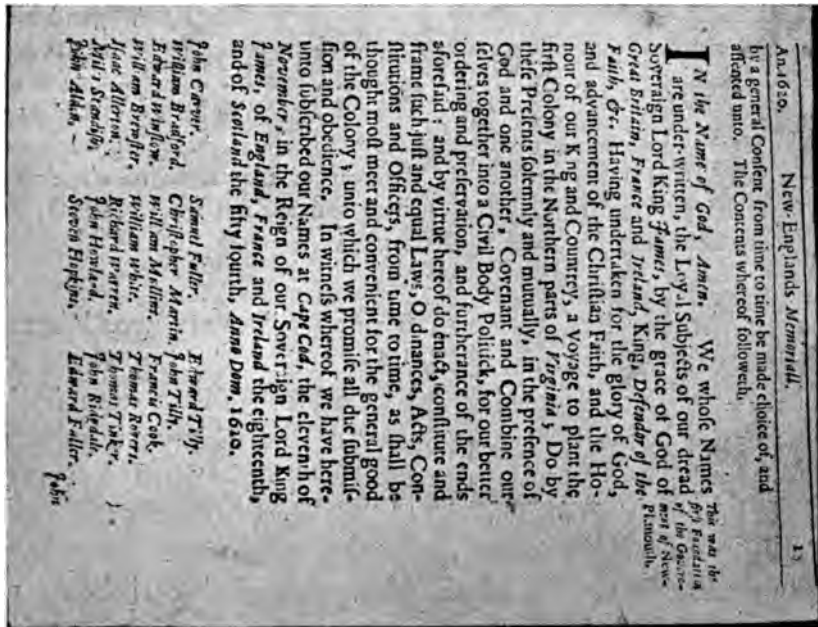 An. 1620. New-Englands Memoriall. 15
by a general Consent from time to time be made choice of, and
assented unto. The Contents whereof followeth.
IN the Name of God, Amen. We whose Names
are under-written, the Loyal Subjects of our dread
Soveraign Lord King James, by the grace of God of
Great Britain, France and Ireland, King, Defendor of the
Faith, &c. Having undertaken for the glory of God,
and advancement of the Christian Faith, and the Ho-
nour of our King and Countrey, a Voyage to plant the
first Colony in the Northern parts of Virginia; Do by
these Presents solemnly and mutually, in the presence of
God and one another, Covenant and Combine our-
selves together into a Civil Body Politick, for our better
ordering and preservation, and furtherance of the ends
aforesaid: and by virtue hereof do enact, constitute and
frame such just and equal Laws, Ordinances, Acts, Con-
stitutions and Officers, from time to time, as shall be
thought most meet and convenient for the general good
of the Colony; unto which we promise all due submis-
sion and obedience. In witness whereof we have here-
unto subscribed our Names at Cape Cod, the eleventh of
November, in the Reign of our Soveraign Lord King
James, of England, France and Ireland the eighteenth,
and of Scotland the fifty fourth, Anno Dom. 1620.
This was the
first Foundation
of the Govern-
ment of New-
Plimouth.
John Carver. Samuel Fuller. Edward Tilly.
William Bradford. Christopher Martin. John Tilly.
Edward Winslow. William Mullins. Francis Cook.
William Brewster. William White. Thomas Rogers.
Isaac Allerton. Richard Warren. Thomas Tinker.
Miles Standish. John Howland. John Ridgdale.
John Alden. Steven Hopkins. Edward Fuller.
John